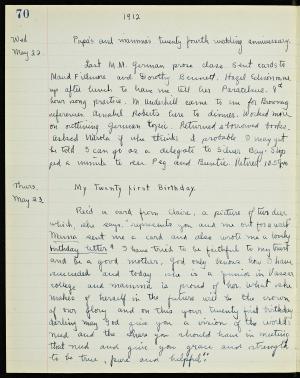 70
1912
Wed
May 22.
Papa's and mamma's twenty fourth wedding anniversary.
Last M.M. German prose class. Sent cards to
Maud Filmore and Dorothy Bennett. Hazel
up after lunch to have me tell her 8th
hour song practice. M. Underhill came to me for Browning
reference. Annabel Roberts here to dinner. Worked more
on outlining German topic. Returned books.
Asked Viola if she thinks I probable I may get
be told I can go as a delegate to Silver Bay. Stop
ped a minute to see Peg and Auntie. Retired 10:50 P.M.
Thurs.
May 23.
My Twenty first Birthday.
Rec'd a card from Claire, a picture of two deer
which, she says, represents you and me out for a walk
sent me a card and also wrote me a lovely
birthday letter. "I have tried to be faithful to my trust
and be a good mother, God only knows how I have
succeeded and today she is a junior in Vassar
college and mamma is proud of her. What she
makes of herself in the future will be the crown
of our glory and on this your twenty first birthday
darling may God give you a vision of the world's
need and the share you should have in meeting
that need and give you grace and strength
to be true, pure and helpful."